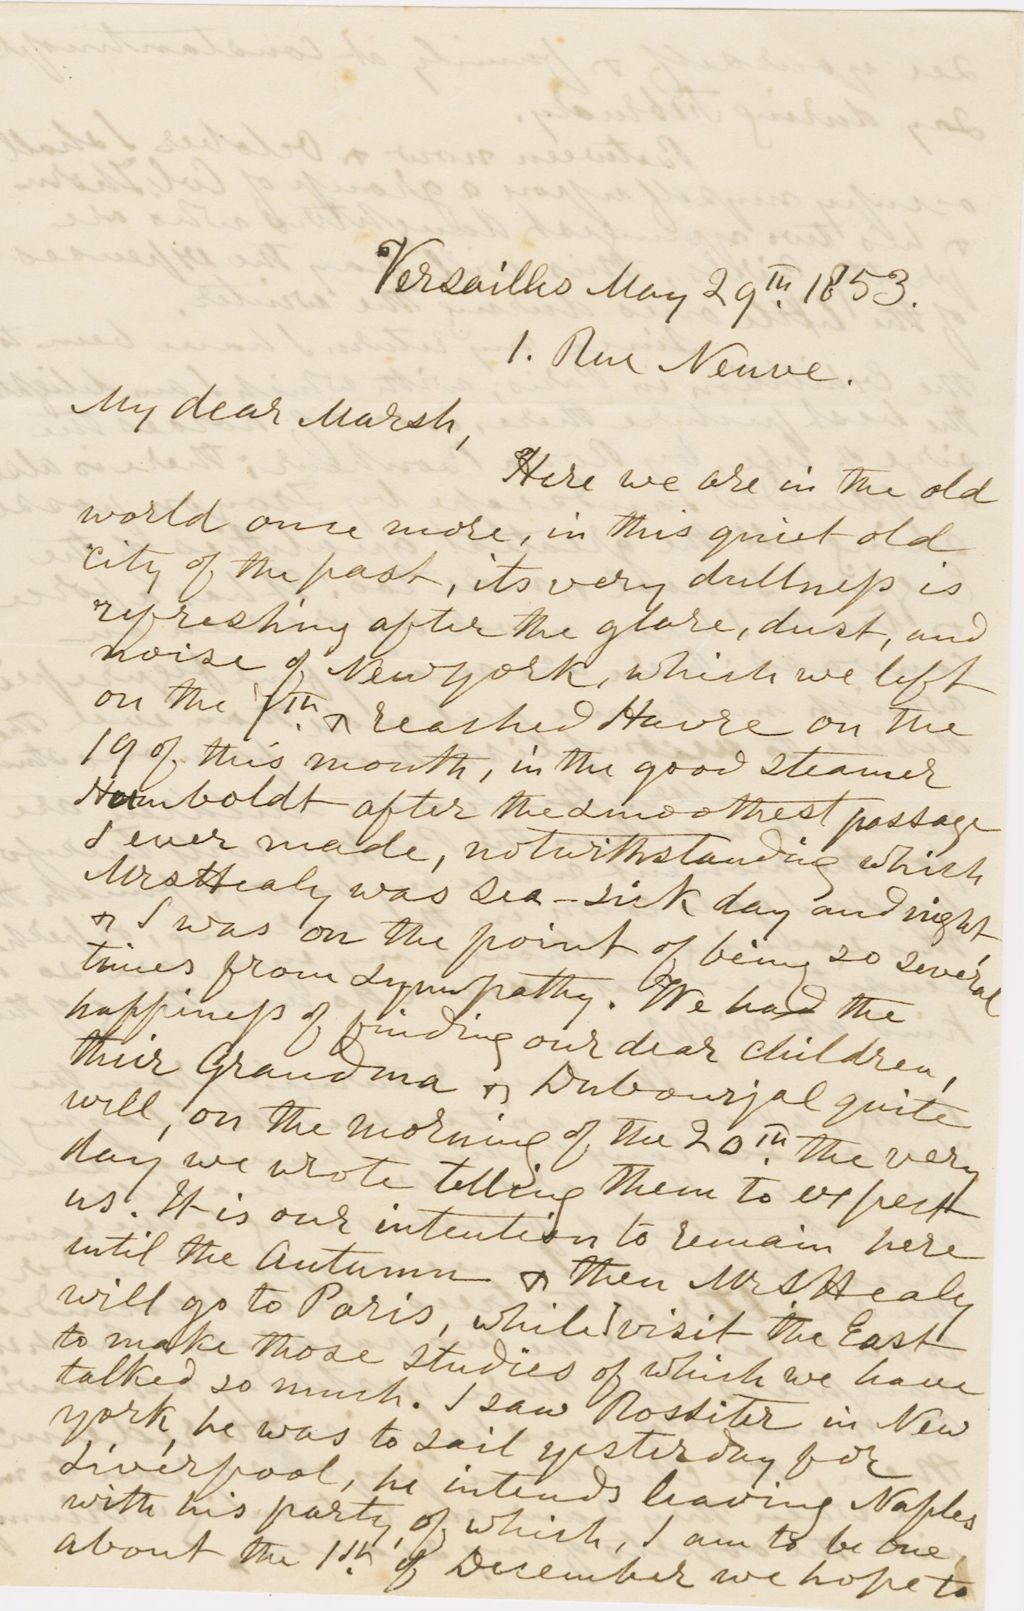 Versailles May 29th. 1853.
1. Rue Neuve.
My dear Marsh,
Here we are in the old
world once more, in this quiet old
city of the past, its very dullness is
refreshing after the glare, dust, and
noise of New York, which we left
on the 7th. & reached Havre on the
19 of this month, in the good steamer
Humboldt after the smoothest passage
I ever made, notwithstanding which
Mrs Healy was sea-sick day and night
& I was on the point of being so several
times from sympathy. We had the
happiness of finding our dear children,
their Grandma & Dubourjal quite
well, on the morning of the 20th. the very
day we wrote telling them to expect
us. It is our intention to remain here
until the Autumn & then Mrs Healy
will go to Paris, while I visit the East
to make those studies of which we have
talked so much. I saw Rossiter in New
York, he was to sail yesterday for
Liverpool, he intends leaving Naples
with his party, of which, I am to be one,
about the 1st. of December we hope to